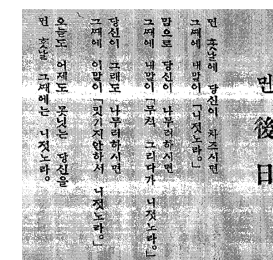 먼 後日
먼 훗날에 당신이 차즈시면
그ᄯᅢ에 내말이 「니젓노라。」
맘으로 당신이 나무러하시면
그ᄯᅢ에 내말이 「무척 그리다가 니젓노라。」
당신이 그래도 나무러하시면
그ᄯᅢ에 이말이 「밋기지안하서 니젓노라。」
오늘도 어제도 못닛는 당신을
먼 훗날 그ᄯᅢ에는 니젓노라。